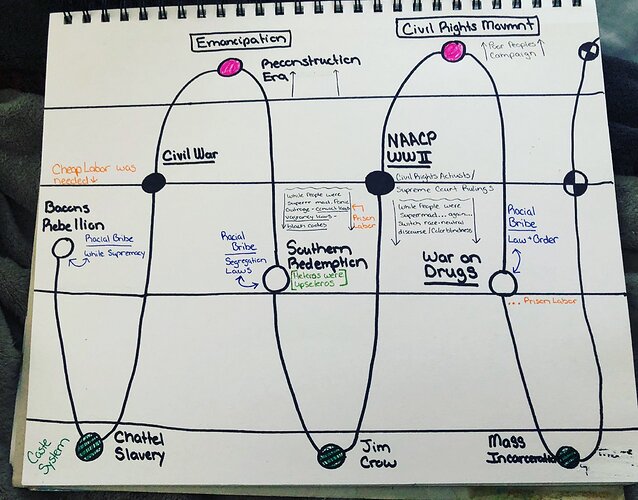 Emancipation
Civil Rights Movmnt
Reconstruction
Era
↑ Poor Peoples ↑
Campaign
Civil War
NAACP
WWII
Cheap Labor was
needed ↓
Civil Rights Activists/
Supreme Court Rulings
While People were
Super mad. Panic
Outrage - Convict laws
Vagrancy laws -
Black codes
Prison
Labor
While People were
Supermad... again...
Switch race-neutral
discourse/Colorblindness
Bacons
Rebellion
Racial Bribe
White Supremacy
Racial
Bribe
Segregation
Laws
Southern
Redemption
War on
Drugs
Racial
Bribe
Law + Order
... Prison Labor
Caste
System
Chattel
Slavery
Jim
Crow
Mass
Incarceration